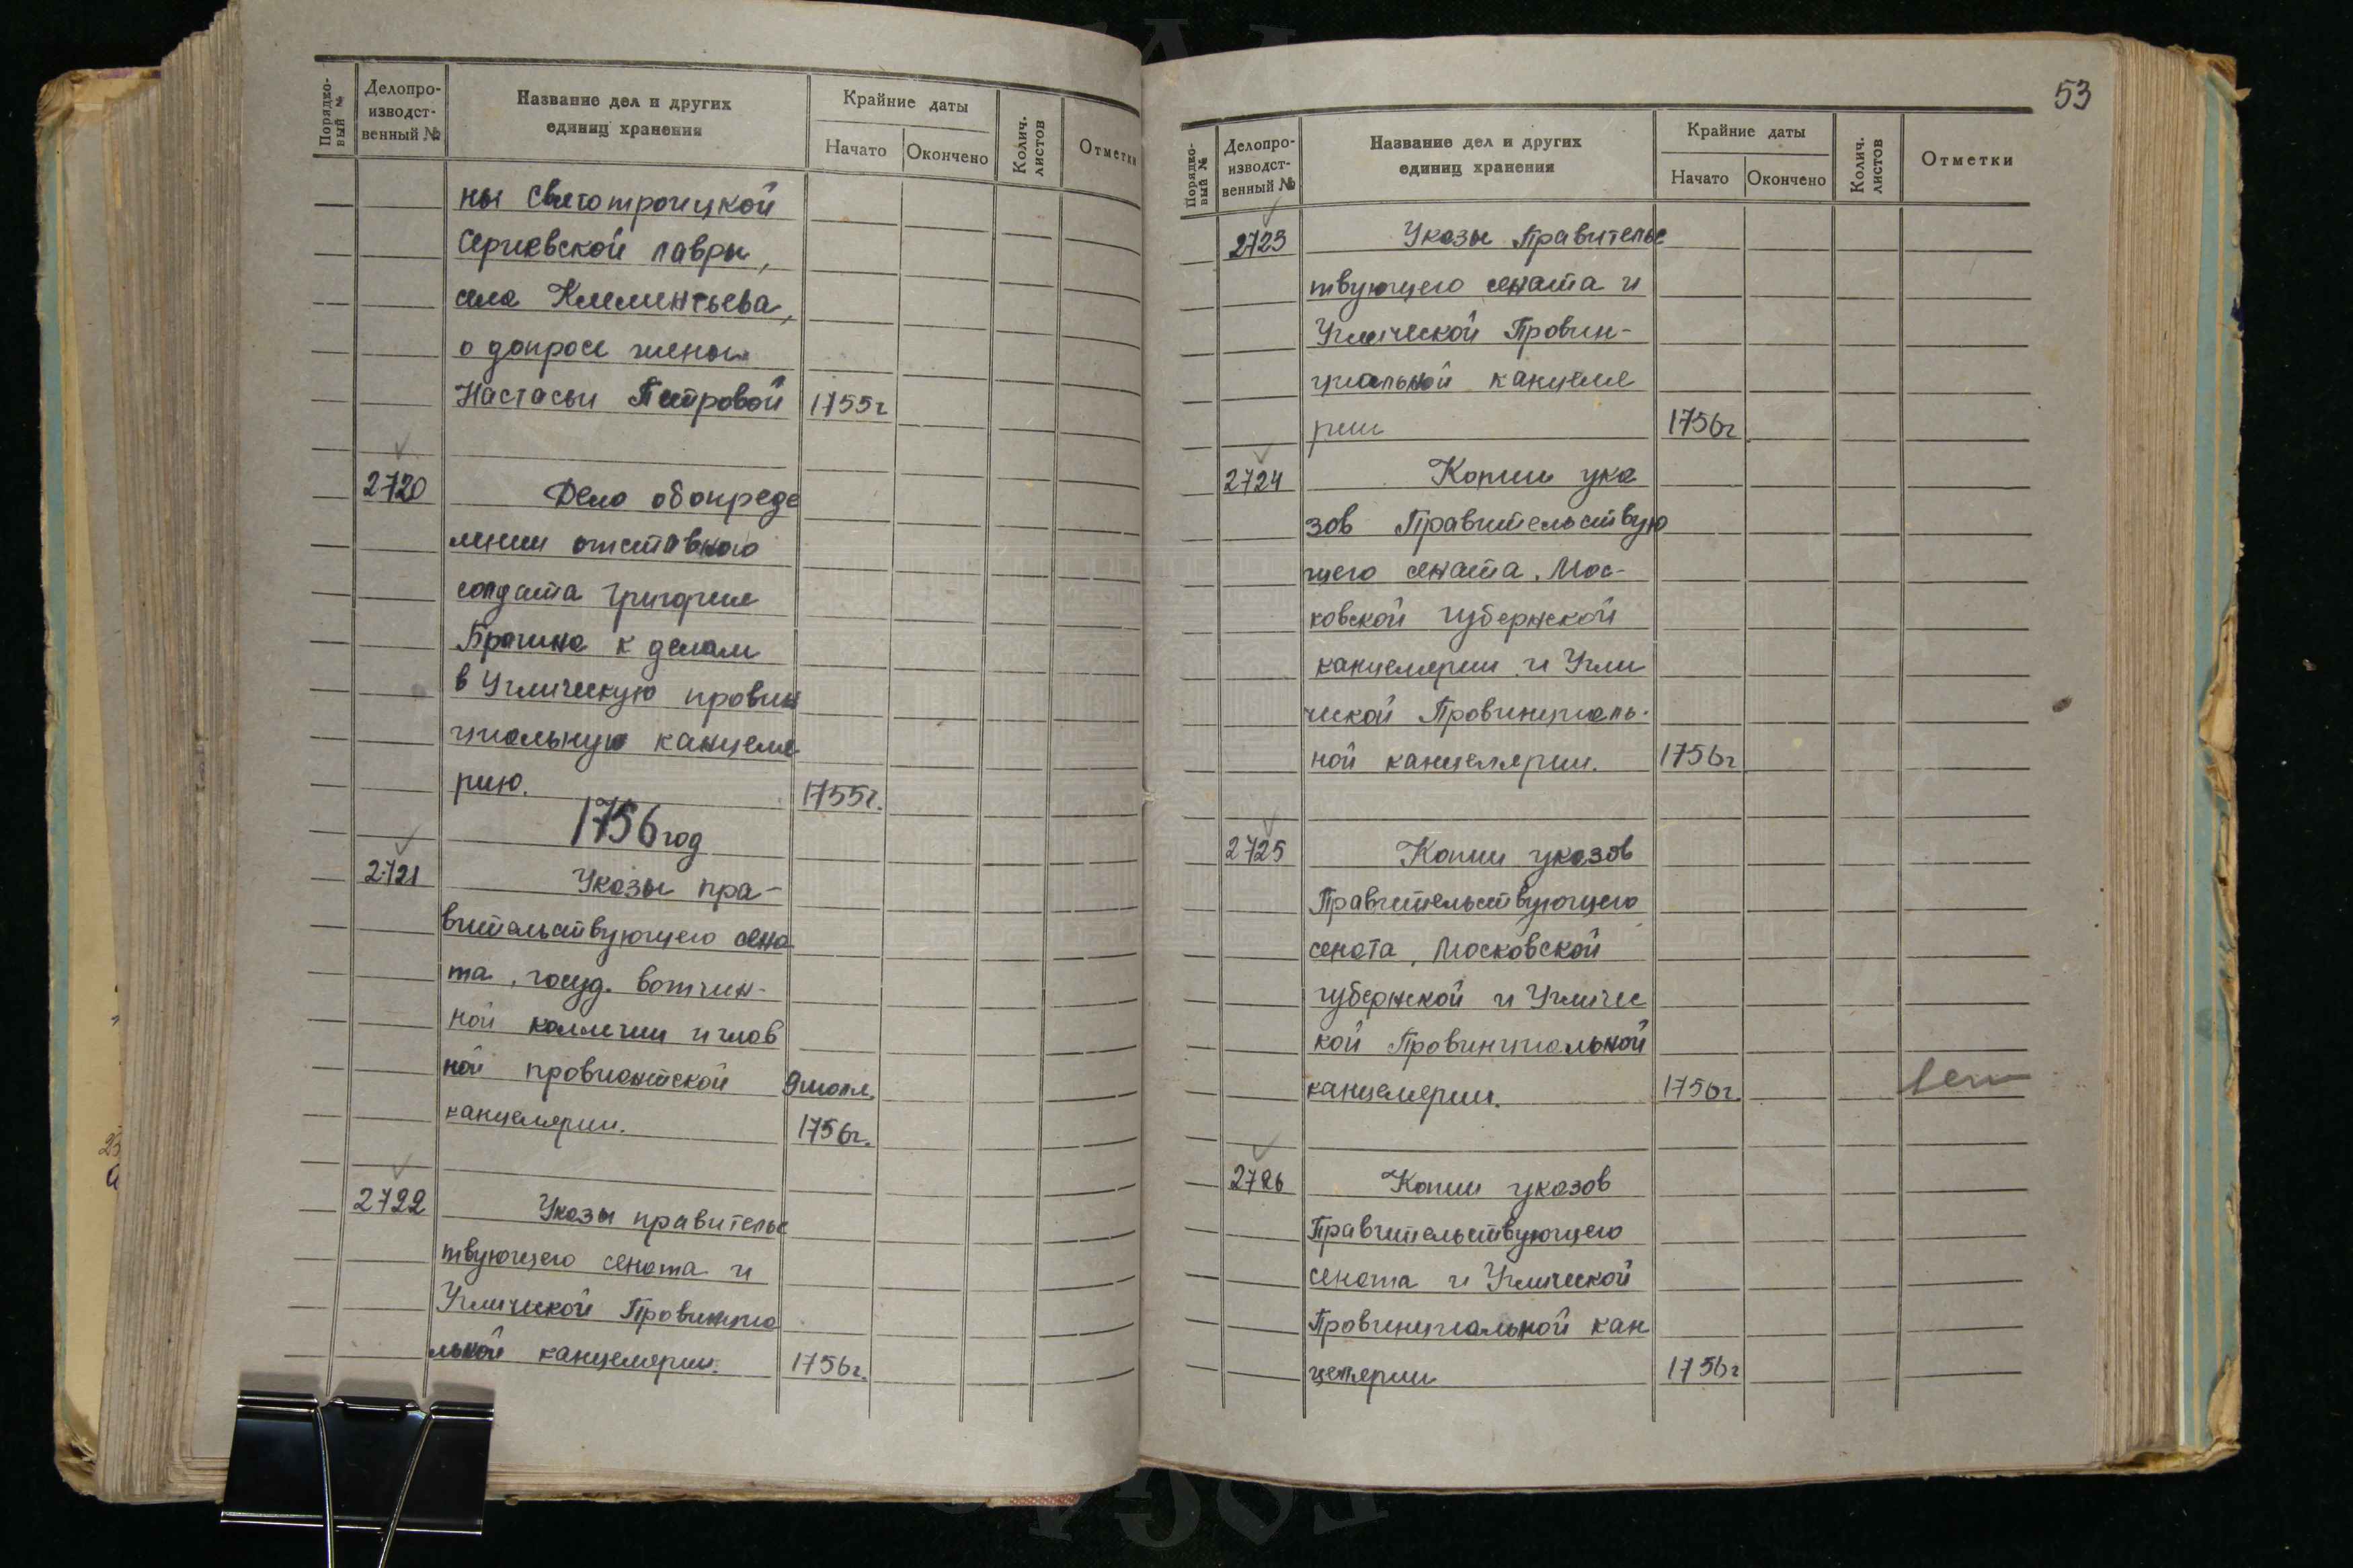 Порядко-
вый №
Делопро-
изводст-
венный №
Название дел и других
единиц хранения
Крайние даты
Начато
Окончено
Колич.
листов
Отметки
ны Святотроицкой
Сергиевской лавры,
села Клементьева,
о допросе жены
Настасьи Петровой 1755г
2720 Дело об опреде
лении отставного
солдата Григория
Брагина к делам
в Угличскую провин
циальную канцеля
рию. 1755г.
1756 год
2721 Указы пра-
вительствующего сена
та, госуд. вотчин-
ной коллегии и глав
ной провиантской 9 июля
канцелярии. 1756г.
2722 Указы правительс
твующего сената и
Углической Провинциа
льной канцелярии. 1756г.
53
Порядко-
вый №
Делопро-
изводст-
венный №
Название дел и других
единиц хранения
Крайние даты
Начато
Окончено
Колич.
листов
Отметки
2723 Указы Правительс
твующего сената и
Углической Провин-
циальной канцеля
рии 1756г
2724 Копии ука
зов Правительствую
щего сената, Мос-
ковской губернской
канцелярии и Угли
ческой Провинциаль-
ной канцелярии. 1756г
2725 Копии указов
Правительствующего
сената, Московской
губернской и Угличес
кой Провинциальной
канцелярии. 1756г.
2726 Копии указов
Правительствующего
сената и Углической
Провинциальной кан
целярии 1756г